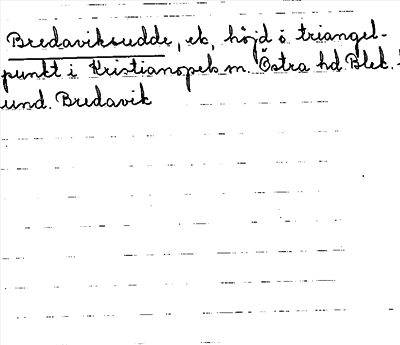 Bredaviksudde, ek, höjd ö triangel-
punkt i Kristianopels m. Östra hd Blek.
und. Bredavik